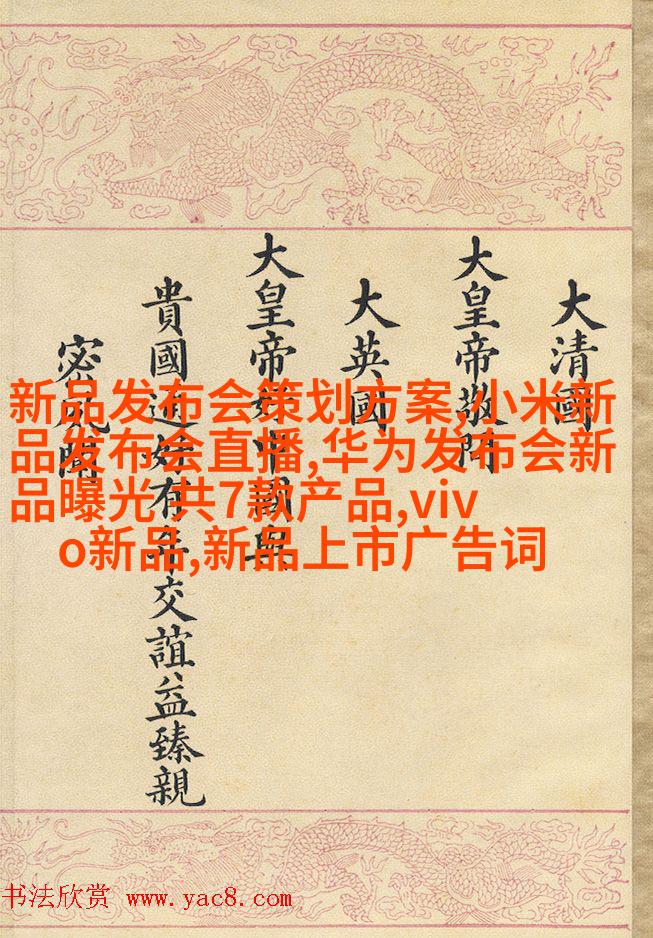 大清國
大皇帝敬問
大英國
大皇帝好中國與
貴國通好有年交誼益臻親
宻
新品发布会策划方案,小米新
品发布会直播,华为发布会新
品曝光 共7款产品,viv
o新品,新品上市广告词
书法欣赏 www.yac8.com